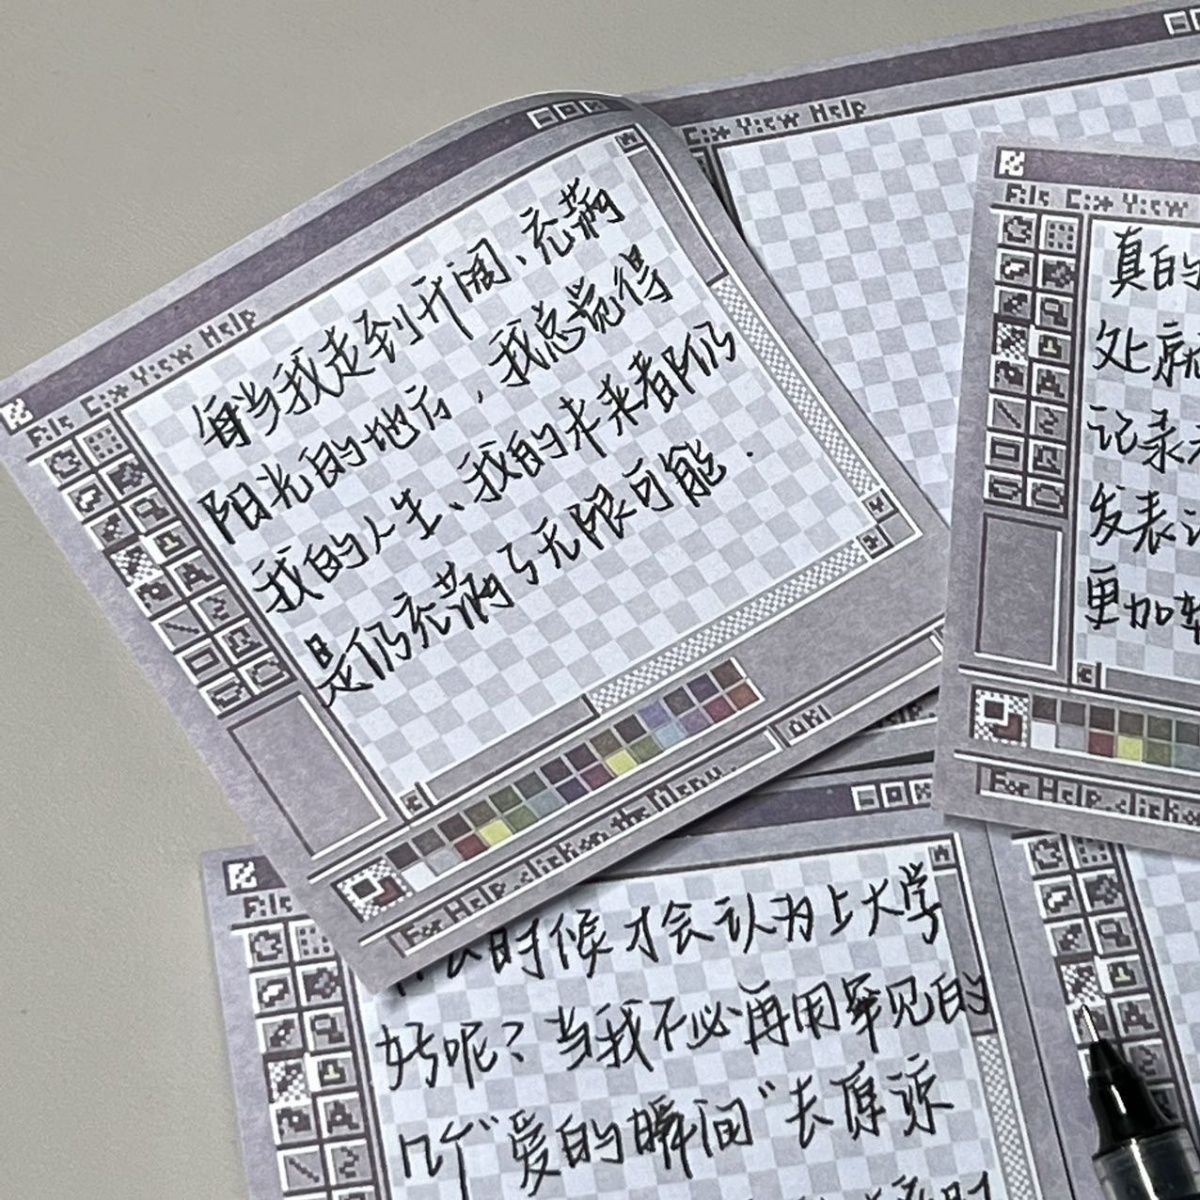 File Edit View Help
每当我走到开阔、充满
阳光的地方，我总觉得
我的人生、我的未来都仍
是仍充满了无限可能.
For Help, click on the Menu.
OK!
View Help
File Edit View
真的
处就
记录
发表
更加
For Help, click on
File
时候才会认为上大学
好呢？当我不必再用罕见的
几个“爱的瞬间”去原谅